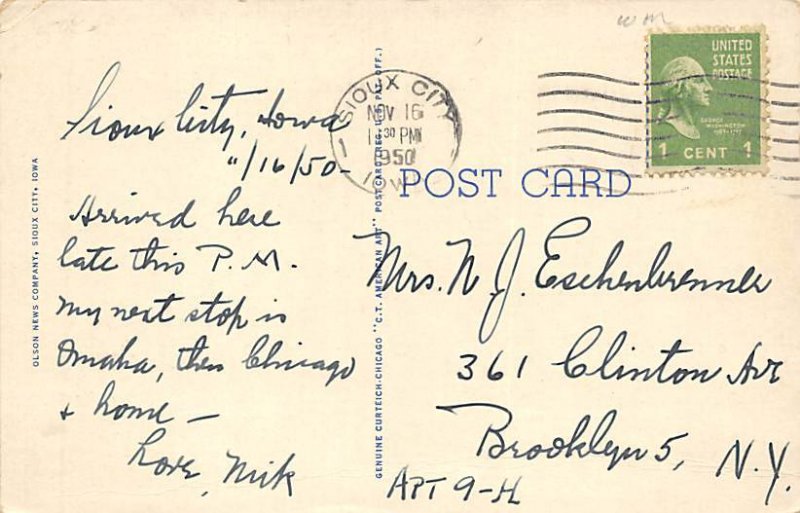 Sioux City, Iowa
11/16/50-
Arrived here
late this P.M.
My next stop is
Omaha, then Chicago
& home —
Love, Nick
OLSON NEWS COMPANY, SIOUX CITY, IOWA
GENUINE CURTEICH-CHICAGO "C.T. AMERICAN ART" POST CARD (REG. U.S. PAT. OFF.)
SIOUX CITY
NOV 16
30 PM
1950
POST CARD
UNITED
STATES
POSTAGE
GEORGE
WASHINGTON
1 CENT 1
Mrs. N J. Eschenbrenner
361 Clinton Ave
Brooklyn 5, N.Y.
APT 9-H